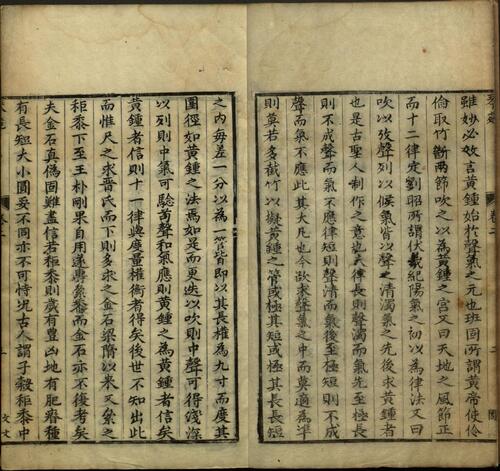 雖妙必效言黃鍾始於聲氣之元也班固所謂黃帝使伶
倫取竹斷兩節吹之以為黃鍾之宮又曰天地之風節正
而十二律定劉昭所謂伏羲紀陽氣之初以為律法又曰
吹以攷聲列以候氣皆以聲之清濁氣之先後求黃鍾者
也是古聖人制作之意也夫律長則聲濁而氣先至極長
則不成聲而氣不應律短則聲清而氣後至極短則不成
聲而氣不應此其大凡也今欲求聲氣之中而莫適為準
則莫若多截竹以擬黃鍾之管或極其短或極其長長短
之內每差一分以為一管皆即以其長權為九寸而度其
圍徑如黃鍾之法焉如是而更迭以吹則中聲可得淺深
以列則中氣可驗苟聲和氣應則黃鍾之為黃鍾者信矣
黃鍾者信則十一律與度量權衡者得矣後世不知出此
而惟尺之求晉氏而下則多求之金石梁隋以來又參之
秬黍下至王朴剛果自用遂專絫黍而金石亦不復考矣
夫金石真偽固難盡信若秬黍則歲有豊凶地有肥瘠種
有長短大小圓妥不同亦不可恃况古人謂子糓秬黍中